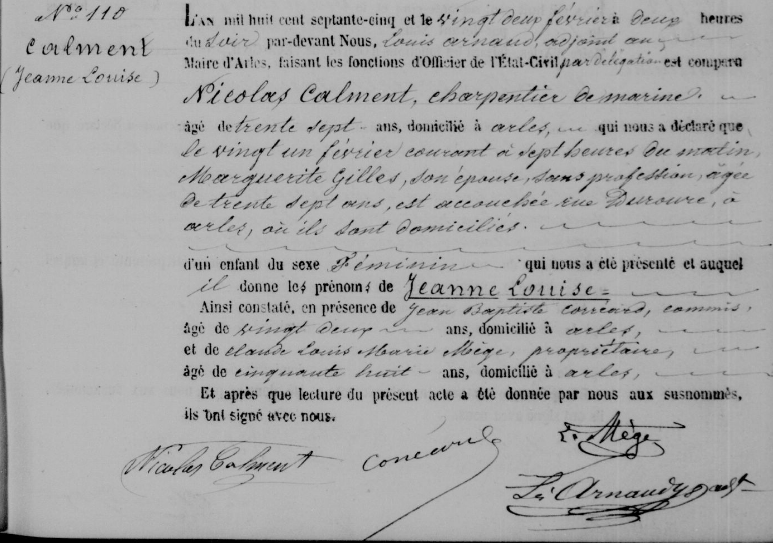 N° 110
Calment
(Jeanne Louise)
L'AN mil huit cent septante-cinq et le vingt deux février à deux heures
du soir par-devant Nous, Louis arnaud, adjoint au
Maire d'Arles, faisant les fonctions d'Officier de l'État-Civil par délégation est comparu
Nicolas Calment, charpentier de marine.
âgé de trente sept ans, domicilié à arles, qui nous a déclaré que
le vingt un février courant à sept heures du matin,
Marguerite Gilles, son épouse, sans profession, âgée
de trente sept ans, est accouchée rue Duroure, à
arles, où ils sont domiciliés.
d'un enfant du sexe Féminin qui nous a été présenté et auquel
il donne les prénoms de Jeanne Louise
Ainsi constaté, en présence de Jean Baptiste correard, commis,
âgé de vingt deux ans, domicilié à arles,
et de claude Louis Marie Mège, propriétaire,
âgé de cinquante huit ans, domicilié à arles,
Et après que lecture du présent acte a été donnée par nous aux susnommés,
ils ont signé avec nous.
L. Mège
Nicolas Calment
Arnaud